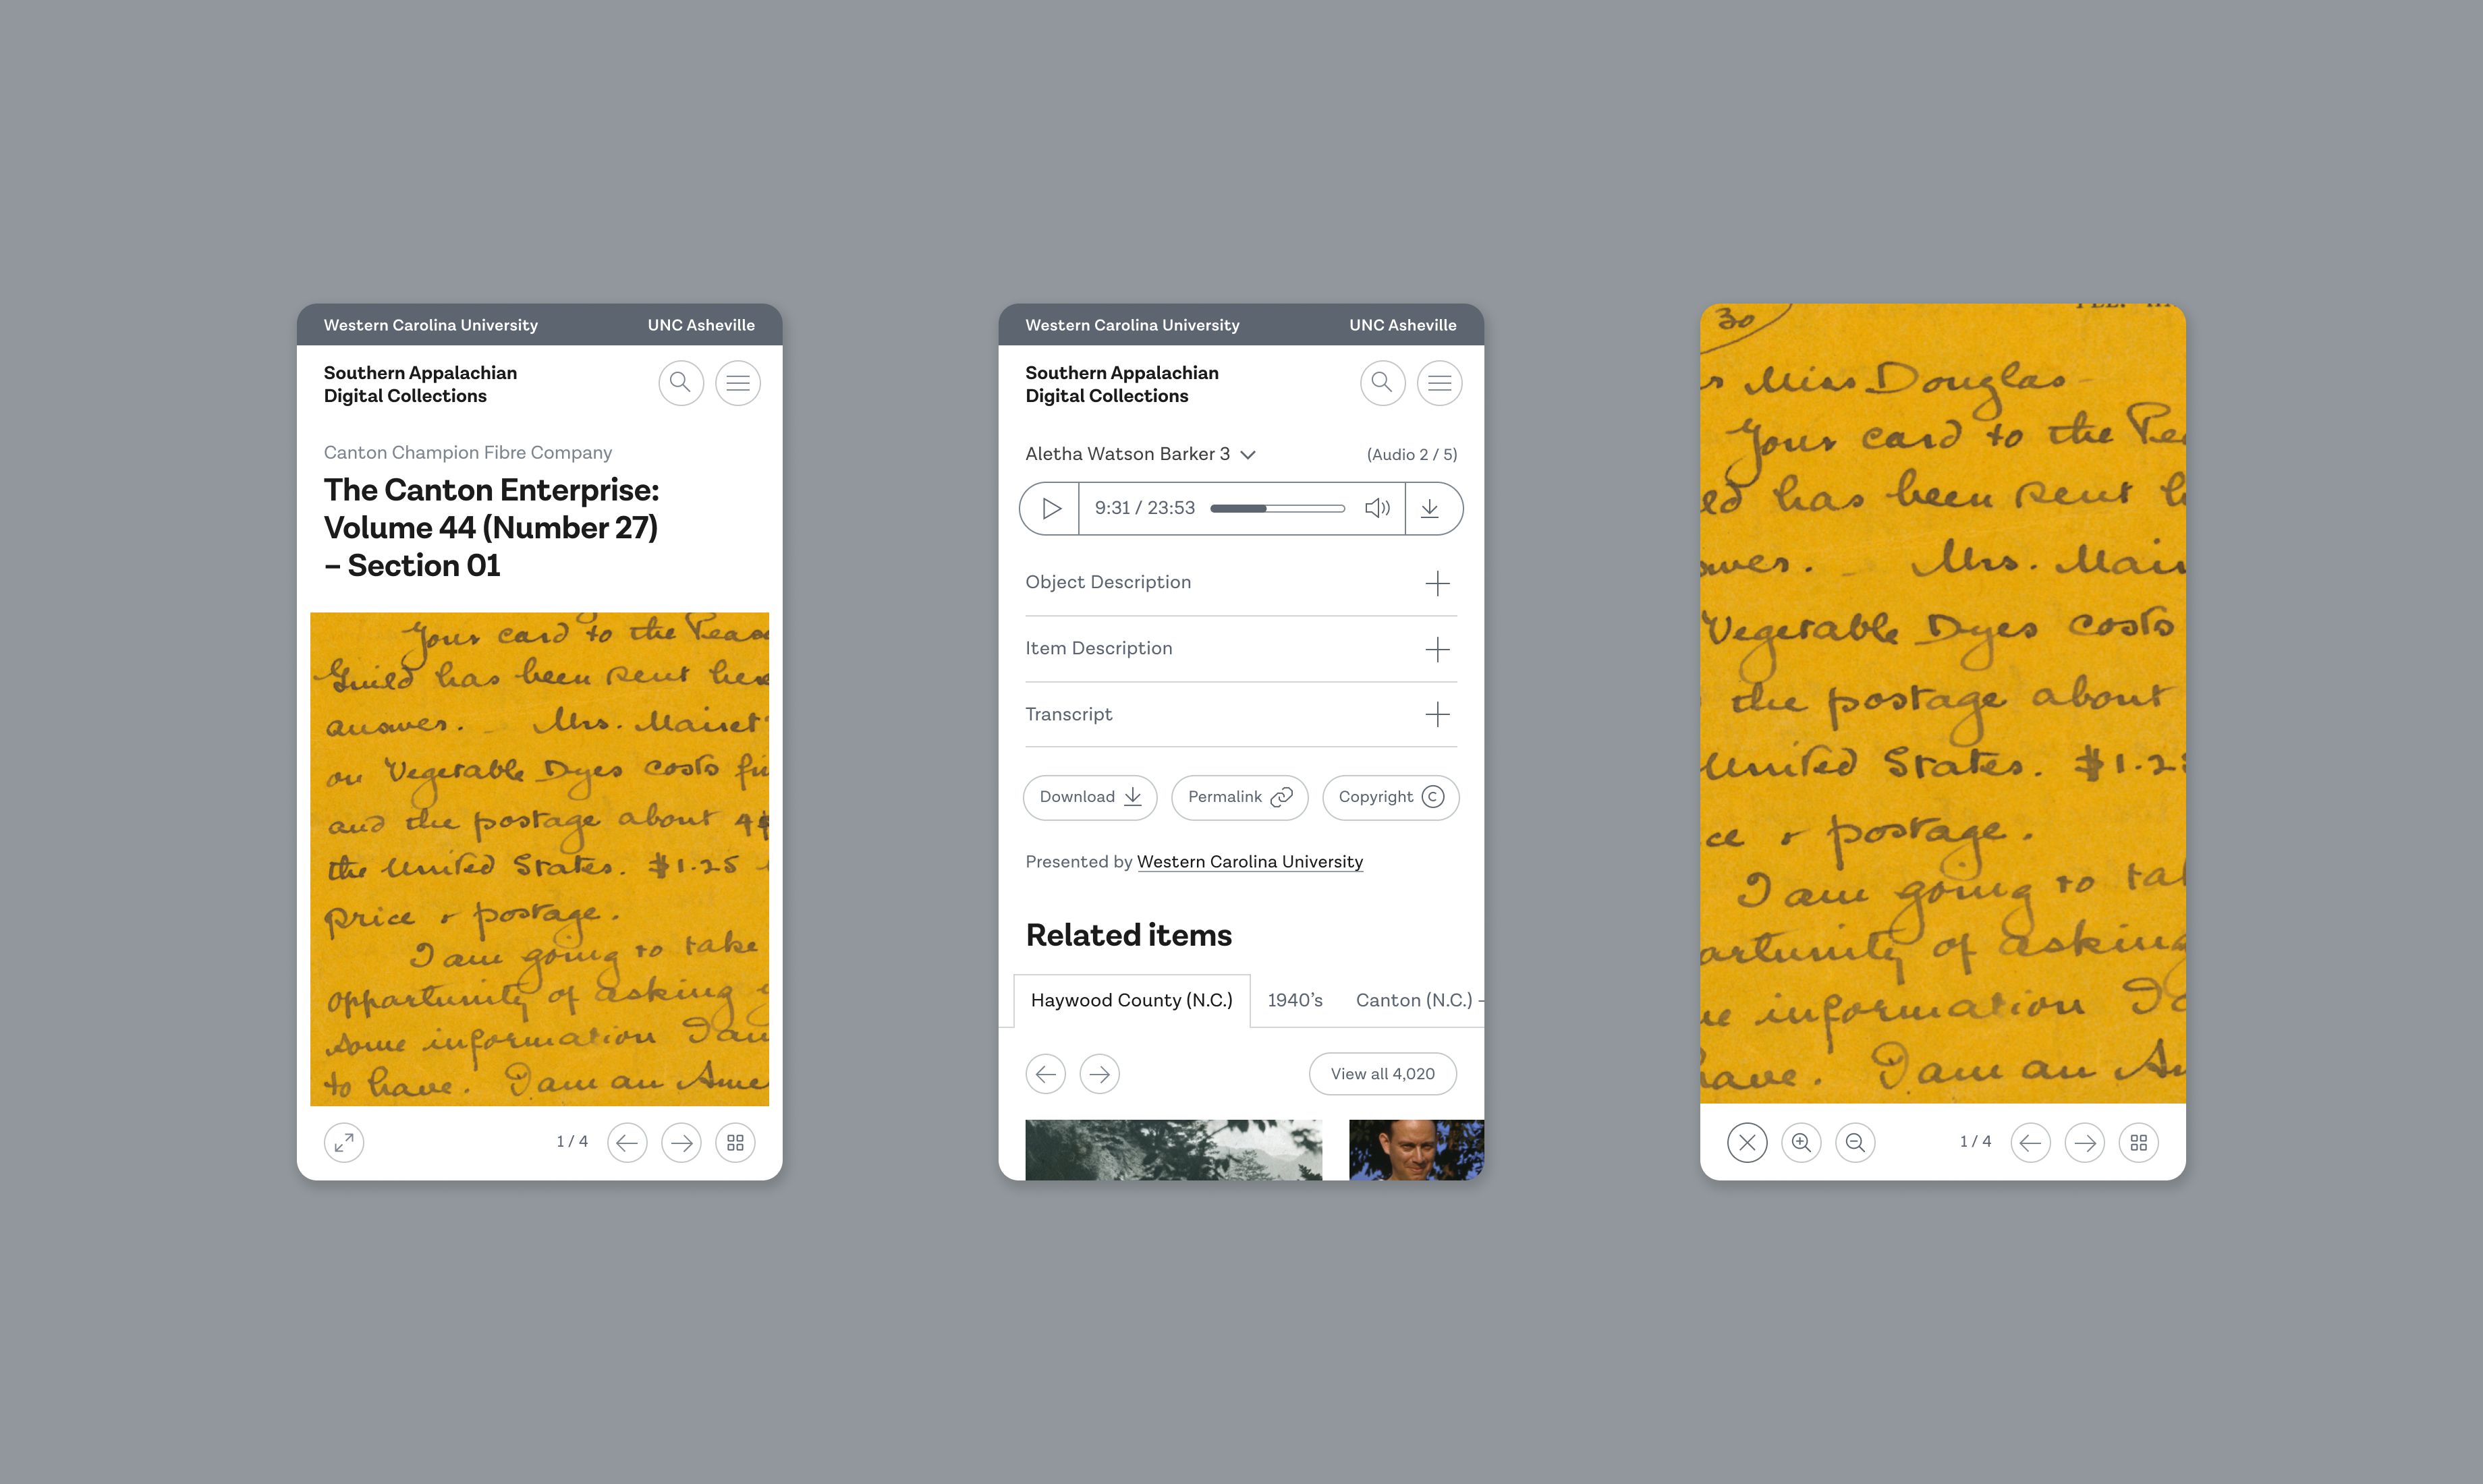 Western Carolina University UNC Asheville
Southern Appalachian
Digital Collections
Canton Champion Fibre Company
The Canton Enterprise:
Volume 44 (Number 27)
– Section 01
Your card to the Peas
Guild has been sent here
answer. Mrs. Mairet
on Vegetable Dyes costs
and the postage about 4
the United States. $1.25
price & postage.
I am going to take
opportunity of asking
some information I am
to have. I am an Ame
1 / 4
Western Carolina University UNC Asheville
Southern Appalachian
Digital Collections
Aletha Watson Barker 3 (Audio 2 / 5)
9:31 / 23:53
Object Description
Item Description
Transcript
Download Permalink Copyright
Presented by Western Carolina University
Related items
Haywood County (N.C.) 1940’s Canton (N.C.) -
View all 4,020
30
Miss Douglas -
Your card to the Pea
has been sent h
swer. Mrs. Mair
Vegetable Dyes costs
the postage about
United States. $1.2
ce & postage.
I am going to ta
ortunity of asking
information I a
have. I am an Am
1 / 4